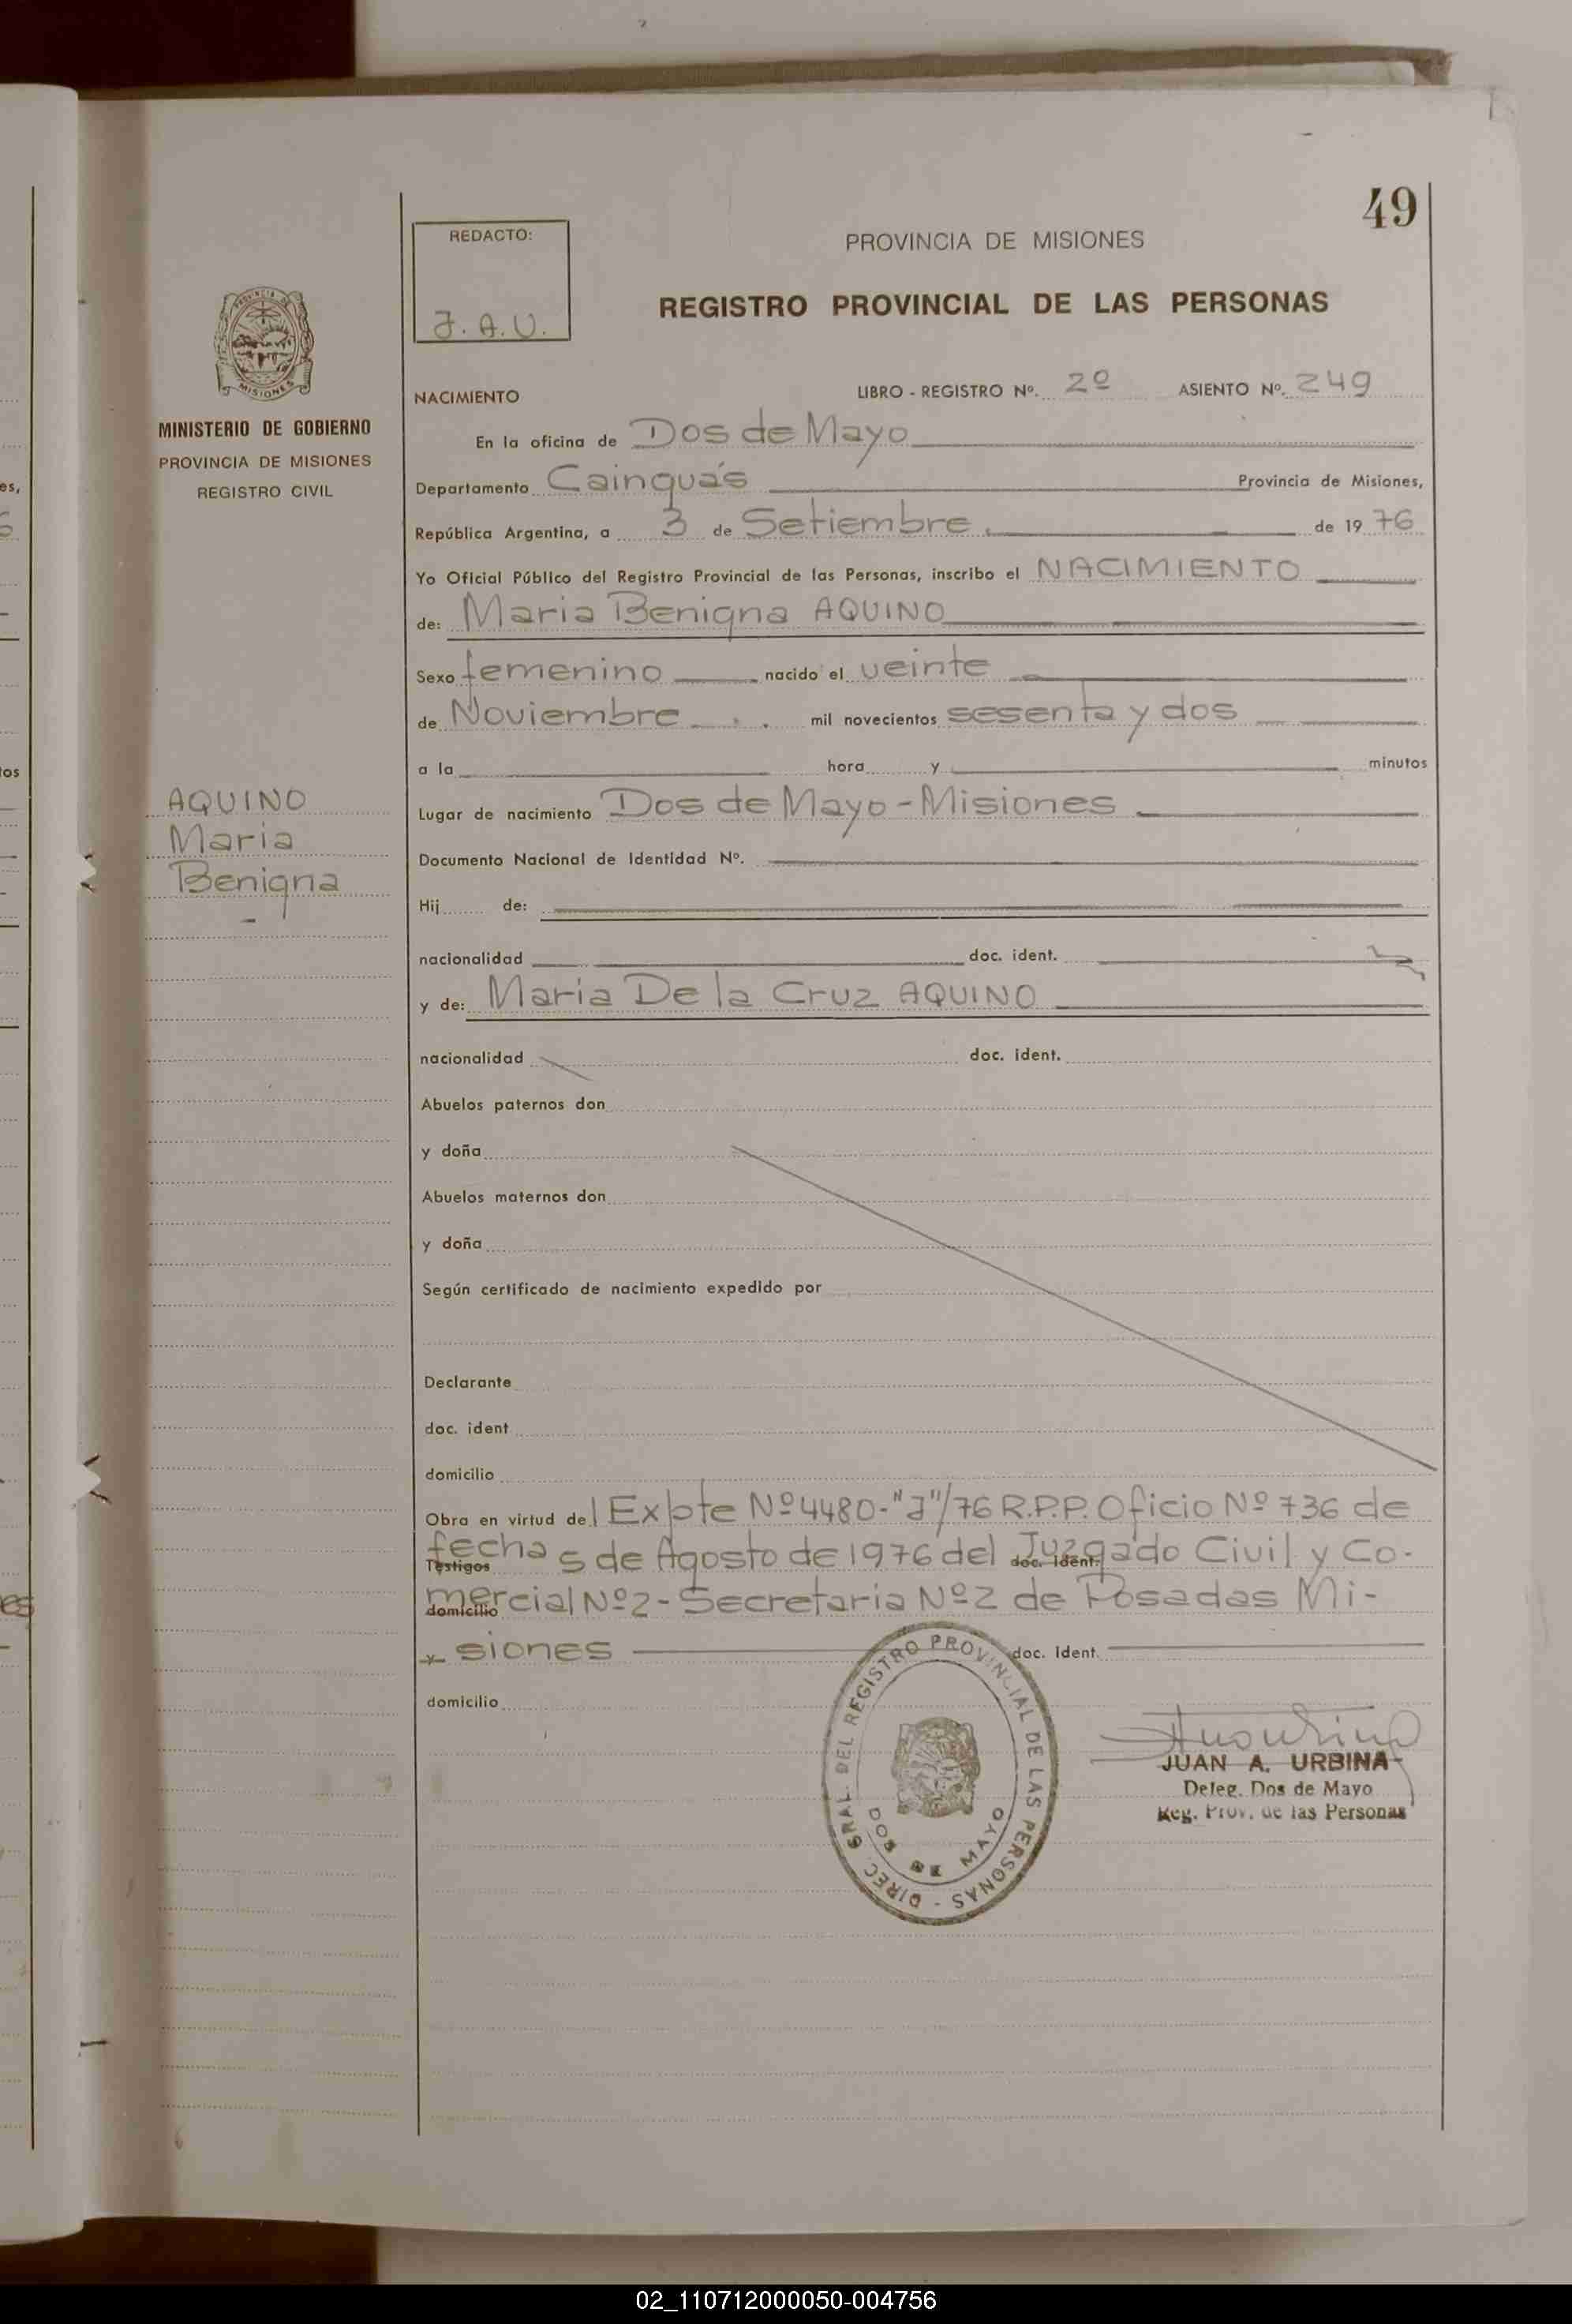 49
REDACTO:
J. A. U.
PROVINCIA DE MISIONES
REGISTRO PROVINCIAL DE LAS PERSONAS
MISIONES
MINISTERIO DE GOBIERNO
PROVINCIA DE MISIONES
REGISTRO CIVIL
NACIMIENTO LIBRO - REGISTRO Nº. 2º ASIENTO Nº. 249
En la oficina de Dos de Mayo
Departamento Cainguás Provincia de Misiones,
República Argentina, a 3 de Setiembre de 1976
Yo Oficial Público del Registro Provincial de las Personas, inscribo el NACIMIENTO
de: Maria Benigna AQUINO
Sexo femenino nacido el veinte
de Noviembre mil novecientos sesenta y dos
a la hora y minutos
AQUINO
Maria
Benigna
Lugar de nacimiento Dos de Mayo - Misiones
Documento Nacional de Identidad Nº.
Hij de:
nacionalidad doc. ident.
y de: Maria De la Cruz AQUINO
nacionalidad doc. ident.
Abuelos paternos don
y doña
Abuelos maternos don
y doña
Según certificado de nacimiento expedido por
Declarante
doc. ident
domicilio
Obra en virtud del Expte Nº 4480-"a"/76 R.P.P. Oficio Nº 736 de
Testigos doc. ident.
fecha 5 de Agosto de 1976 del Juzgado Civil y Co-
domicilio
mercial Nº 2 - Secretaria Nº 2 de Posadas Mi-
y siones doc. Ident.
domicilio
DIREC. GRAL. DEL REGISTRO PROVINCIAL DE LAS PERSONAS -
DOS DE MAYO
JUAN A. URBINA
Deleg. Dos de Mayo
Reg. Prov. de las Personas
02_110712000050-004756